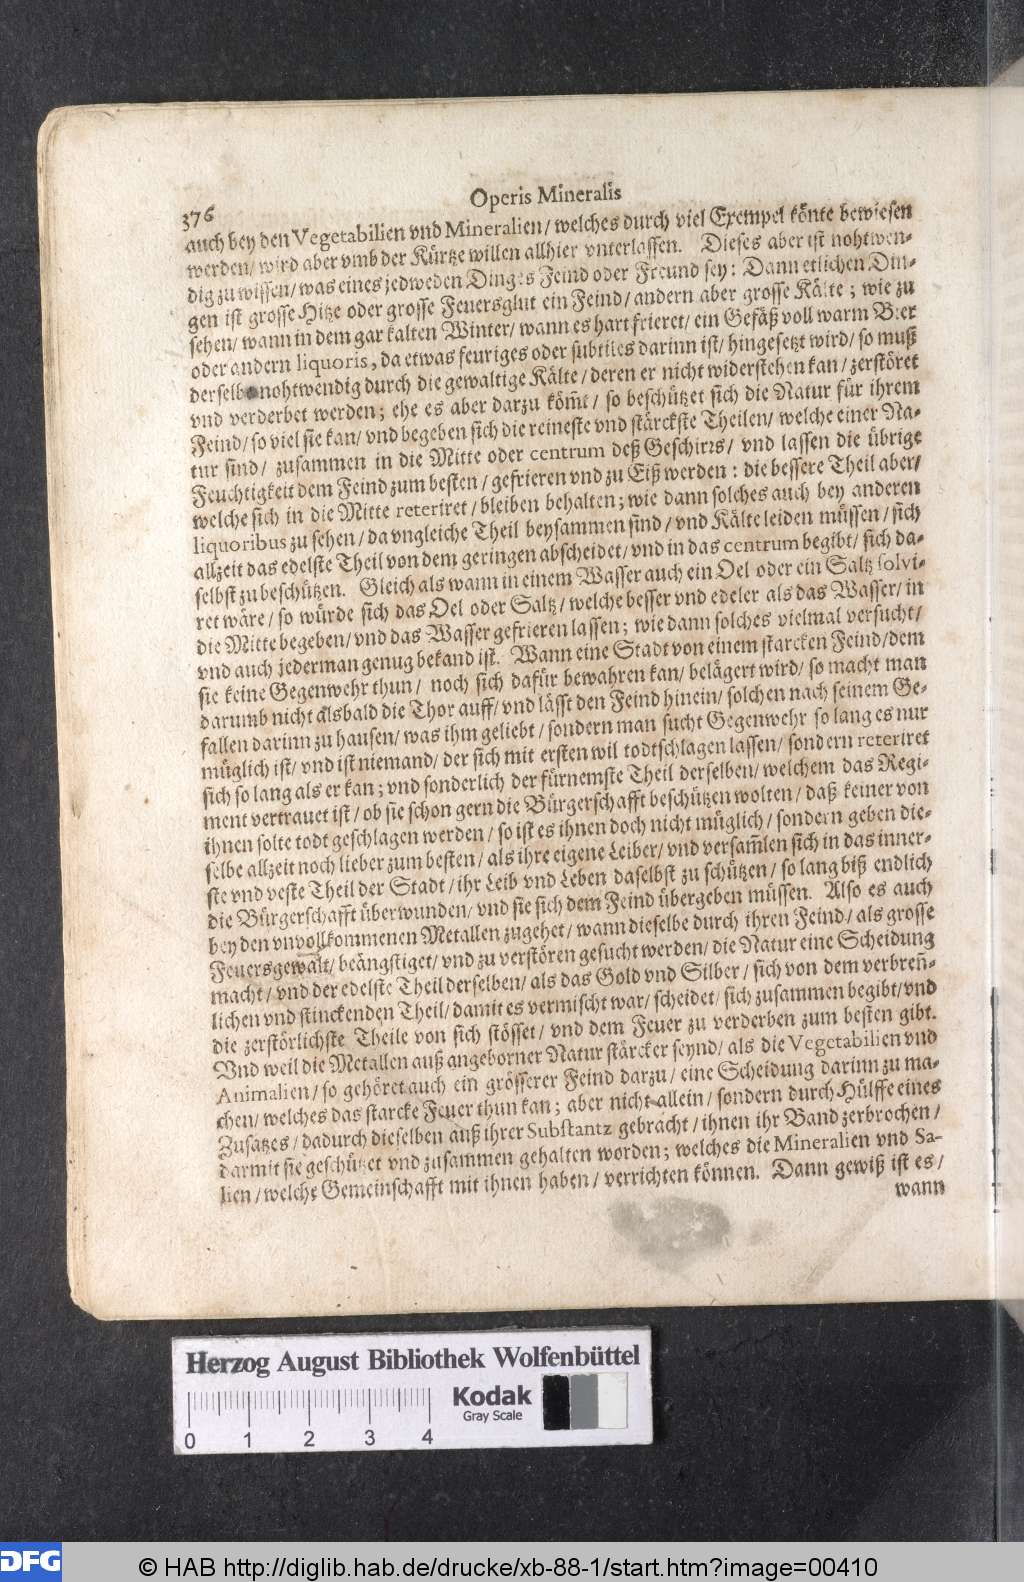 376
Operis Mineralis
auch bey den Vegetabilien vnd Mineralien/ welches durch viel Exempel könte bewiesen
werden/ wird aber vmb der Kürtze willen allhier vnterlassen. Dieses aber ist nohtwen-
dig zu wissen/ was eines jedweden Dinges Feind oder Freund sey: Dann etlichen Din-
gen ist grosse Hitze oder grosse Feuersglut ein Feind/ andern aber grosse Kälte; wie zu
sehen/ wann in dem gar kalten Winter/ wann es hart frieret/ ein Gefäß voll warm Bier
oder andern liquoris, da etwas feuriges oder subtiles darinn ist/ hingesetzt wird/ so muß
derselbe nohtwendig durch die gewaltige Kälte/ deren er nicht widerstehen kan/ zerstöret
vnd verderbet werden; ehe es aber darzu köm̃t/ so beschützet sich die Natur für ihrem
Feind/ so viel sie kan/ vnd begeben sich die reineste vnd stärckste Theilen/ welche einer Na-
tur sind/ zusammen in die Mitte oder centrum deß Geschirrs/ vnd lassen die übrige
Feuchtigkeit dem Feind zum besten/ gefrieren vnd zu Eiß werden: die bessere Theil aber/
welche sich in die Mitte reteriret/ bleiben behalten; wie dann solches auch bey anderen
liquoribus zu sehen/ da vngleiche Theil beysammen sind/ vnd Kälte leiden müssen/ sich
allzeit das edelste Theil von dem geringen abscheidet/ vnd in das centrum begibt/ sich da-
selbst zu beschützen. Gleich als wann in einem Wasser auch ein Oel oder ein Saltz solvi-
ret wäre/ so würde sich das Oel oder Saltz/ welche besser vnd edeler als das Wasser/ in
die Mitte begeben/ vnd das Wasser gefrieren lassen; wie dann solches vielmal versucht/
vnd auch jederman genug bekand ist. Wann eine Stadt von einem starcken Feind/ dem
sie keine Gegenwehr thun/ noch sich dafür bewahren kan/ belägert wird/ so macht man
darumb nicht alsbald die Thor auff/ vnd lässt den Feind hinein/ solchen nach seinem Ge-
fallen darinn zu hausen/ was ihm geliebt/ sondern man sucht Gegenwehr so lang es nur
müglich ist/ vnd ist niemand/ der sich mit ersten wil todtschlagen lassen/ sondern reteriret
sich so lang als er kan; vnd sonderlich der fürnemste Theil derselben/ welchem das Regi-
ment vertrauet ist/ ob sie schon gern die Bürgerschafft beschützen wolten/ daß keiner von
ihnen solte todt geschlagen werden/ so ist es ihnen doch nicht müglich/ sondern geben die-
selbe allzeit noch lieber zum besten/ als ihre eigene Leiber/ vnd versam̃len sich in das inner-
ste vnd veste Theil der Stadt/ ihr Leib vnd Leben daselbst zu schützen/ so lang biß endlich
die Bürgerschafft überwunden/ vnd sie sich dem Feind übergeben müssen. Also es auch
bey den vnvollkommenen Metallen zugehet/ wann dieselbe durch ihren Feind/ als grosse
Feuersgewalt/ beängstiget/ vnd zu verstören gesucht werden/ die Natur eine Scheidung
macht/ vnd der edelste Theil derselben/ als das Gold vnd Silber/ sich von dem verbreñ-
lichen vnd stinckenden Theil/ damit es vermischt war/ scheidet/ sich zusammen begibt/ vnd
die zerstörlichste Theile von sich stösset/ vnd dem Feuer zu verderben zum besten gibt.
Vnd weil die Metallen auß angeborner Natur stärcker seynd/ als die Vegetabilien vnd
Animalien/ so gehöret auch ein grösserer Feind darzu/ eine Scheidung darinn zu ma-
chen/ welches das starcke Feuer thun kan; aber nicht allein/ sondern durch Hülffe eines
Zusatzes/ dadurch dieselben auß ihrer Substantz gebracht/ ihnen ihr Band zerbrochen/
darmit sie geschützet vnd zusammen gehalten worden; welches die Mineralien vnd Sa-
lien/ welche Gemeinschafft mit ihnen haben/ verrichten können. Dann gewiß ist es/
wann
Herzog August Bibliothek Wolfenbüttel
Kodak
Gray Scale
0 1 2 3 4
DFG
© HAB http://diglib.hab.de/drucke/xb-88-1/start.htm?image=00410